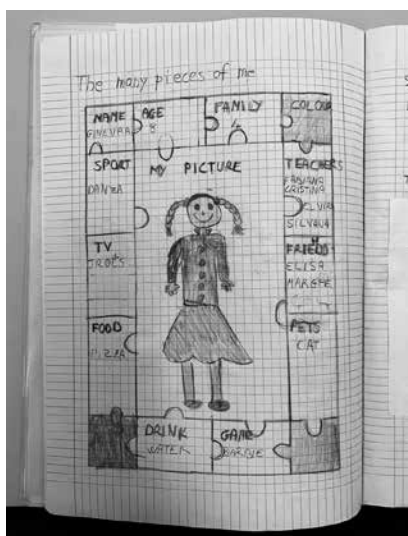 The many pieces of me
NAME
GINEVRA
AGE
8
FAMILY
4
COLOUR
SPORT
DANZA
MY PICTURE
TEACHERS
FABIANA
CRISTINA
ELVIRA
SILVANA
TV
TROLLS
ELISA
FOOD
PIZZA
PETS
CAT
DRINK
WATER
GAME
BARBIE